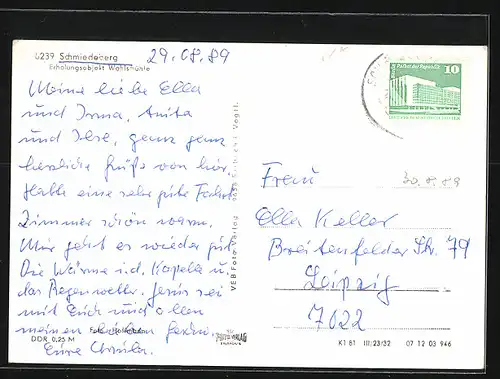 8239 Schmiedeberg
Erholungsobjekt Wahlsmühle
29.08.89
Meine liebe Ella
und Irma, Anita
und Ilse, ganz ganz
herzliche Grüße von hier.
Hatte eine sehr gute Fahrt
Zimmer schön warm.
Mir geht es wieder gut
Die Wärme i.d. Kapelle u.
das Regenwetter. Jesus sei
mit Euch und allen
meinen
Eure Ursula.
DDR 0,25 M
VEB Foto-Verlag
Palast der Republik
10
30.8.89
Frau
Ella Keller
Breitenfelder Str. 79
Leipzig
7022
K1 81 III/23/32 07 12 03 946